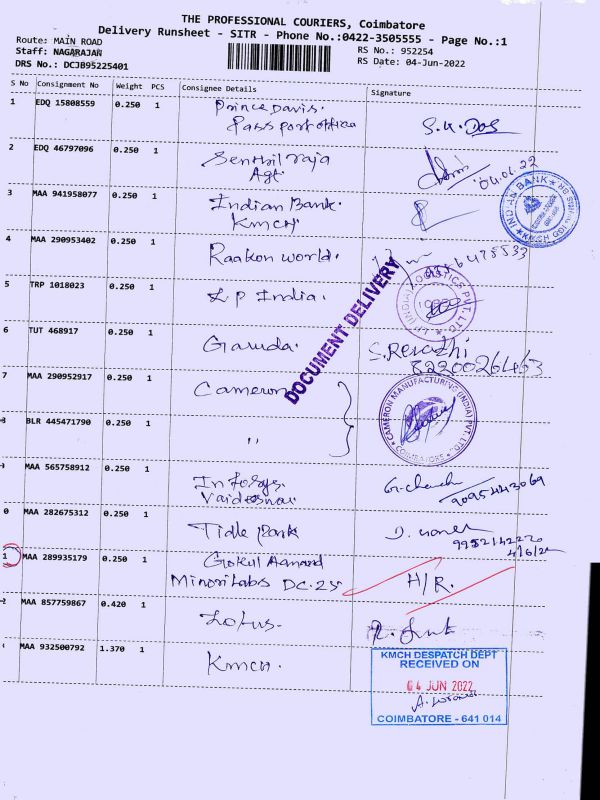 THE PROFESSIONAL COURIERS, Coimbatore
Delivery Runsheet - SITR - Phone No.:0422-3505555 - Page No.:1
Route: MAIN ROAD
Staff: NAGARAJAN
DRS No.: DCJB95225401
RS No.: 952254
RS Date: 04-Jun-2022
S No Consignment No Weight PCS Consignee Details Signature
1 EDQ 15808559 0.250 1 Prince Davis.
Passport office
2 EDQ 46797096 0.250 1 Senthil raja
Agt.
04.06.22
3 MAA 941958077 0.250 1 Indian Bank.
KMCH
INDIAN BANK
4 MAA 290953402 0.250 1 Raakon world.
5 TRP 1018023 0.250 1 LP India.
(INDIA) LOGISTICS PVT. LTD.
DOCUMENT DELIVERY
6 TUT 468917 0.250 1 Garuda. S. Revathi
8220026463
7 MAA 290952917 0.250 1 Cameron
CAMERON MANUFACTURING (INDIA) PVT. LTD.
COIMBATORE
BLR 445471790 0.250 1 "
MAA 565758912 0.250 1 Infosys
9095443069
0 MAA 282675312 0.250 1 Tidle Park
9952142220
4/6/22
1 MAA 289935179 0.250 1 Gokul Aanand
Minori Labs DC-25 H/R.
2 MAA 857759867 0.420 1 Lotus.
MAA 932500792 1.370 1 KMCH.
KMCH DESPATCH DEPT
RECEIVED ON
04 JUN 2022
COIMBATORE - 641 014